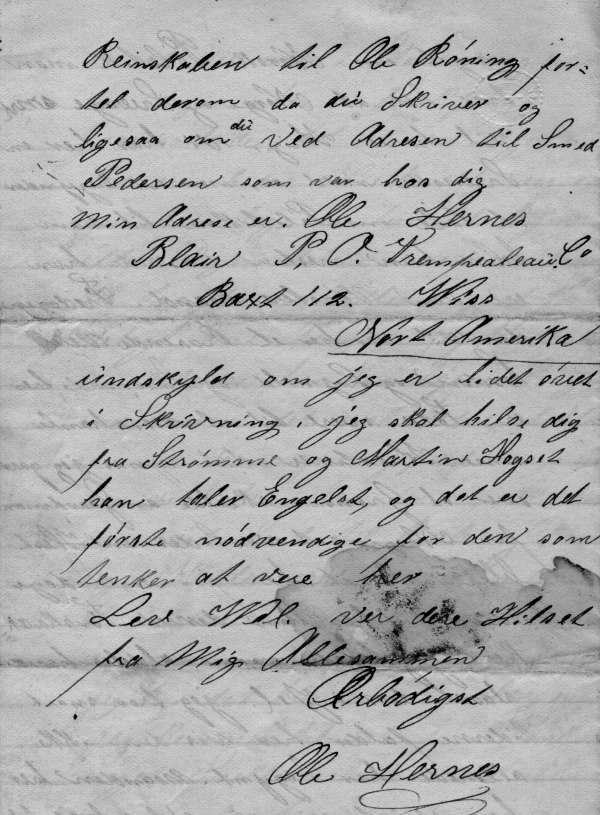 Reinskaben til Ole Róning for=
tel derom da du Skriver og
ligesaa om du Ved Adresen til Smed
Pedersen som var hos dig
Min Adrese er. Ole Hernes
Blair P, O. Trempealeau Co
Baxt 112. Wiss
Nort Amerika
undskyld om jeg er lidet óvet
i Skrivning, jeg skal hilse dig
fra Strómme og Martin Hogset
han taler Engelst, og det er det
fórste nódvendige for den som
tenker at vere her
Lev Wel. ver dere Hilset
fra Mig Allesammen
Ærbódigst
Ole Hernes